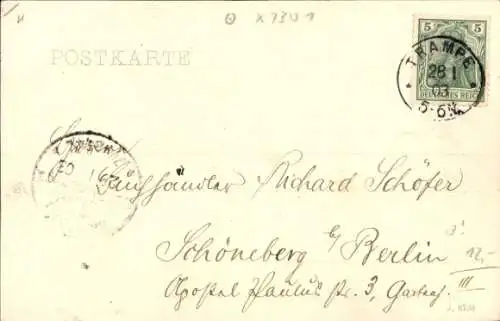 X 7301
POSTKARTE
5 5
DEUTSCHES REICH
TRAMPE
28 1
03
5-6N.
Richard Schöfer
Schöneberg b/ Berlin
12,-
Apostel Paulus str. 3, Gartenh. III